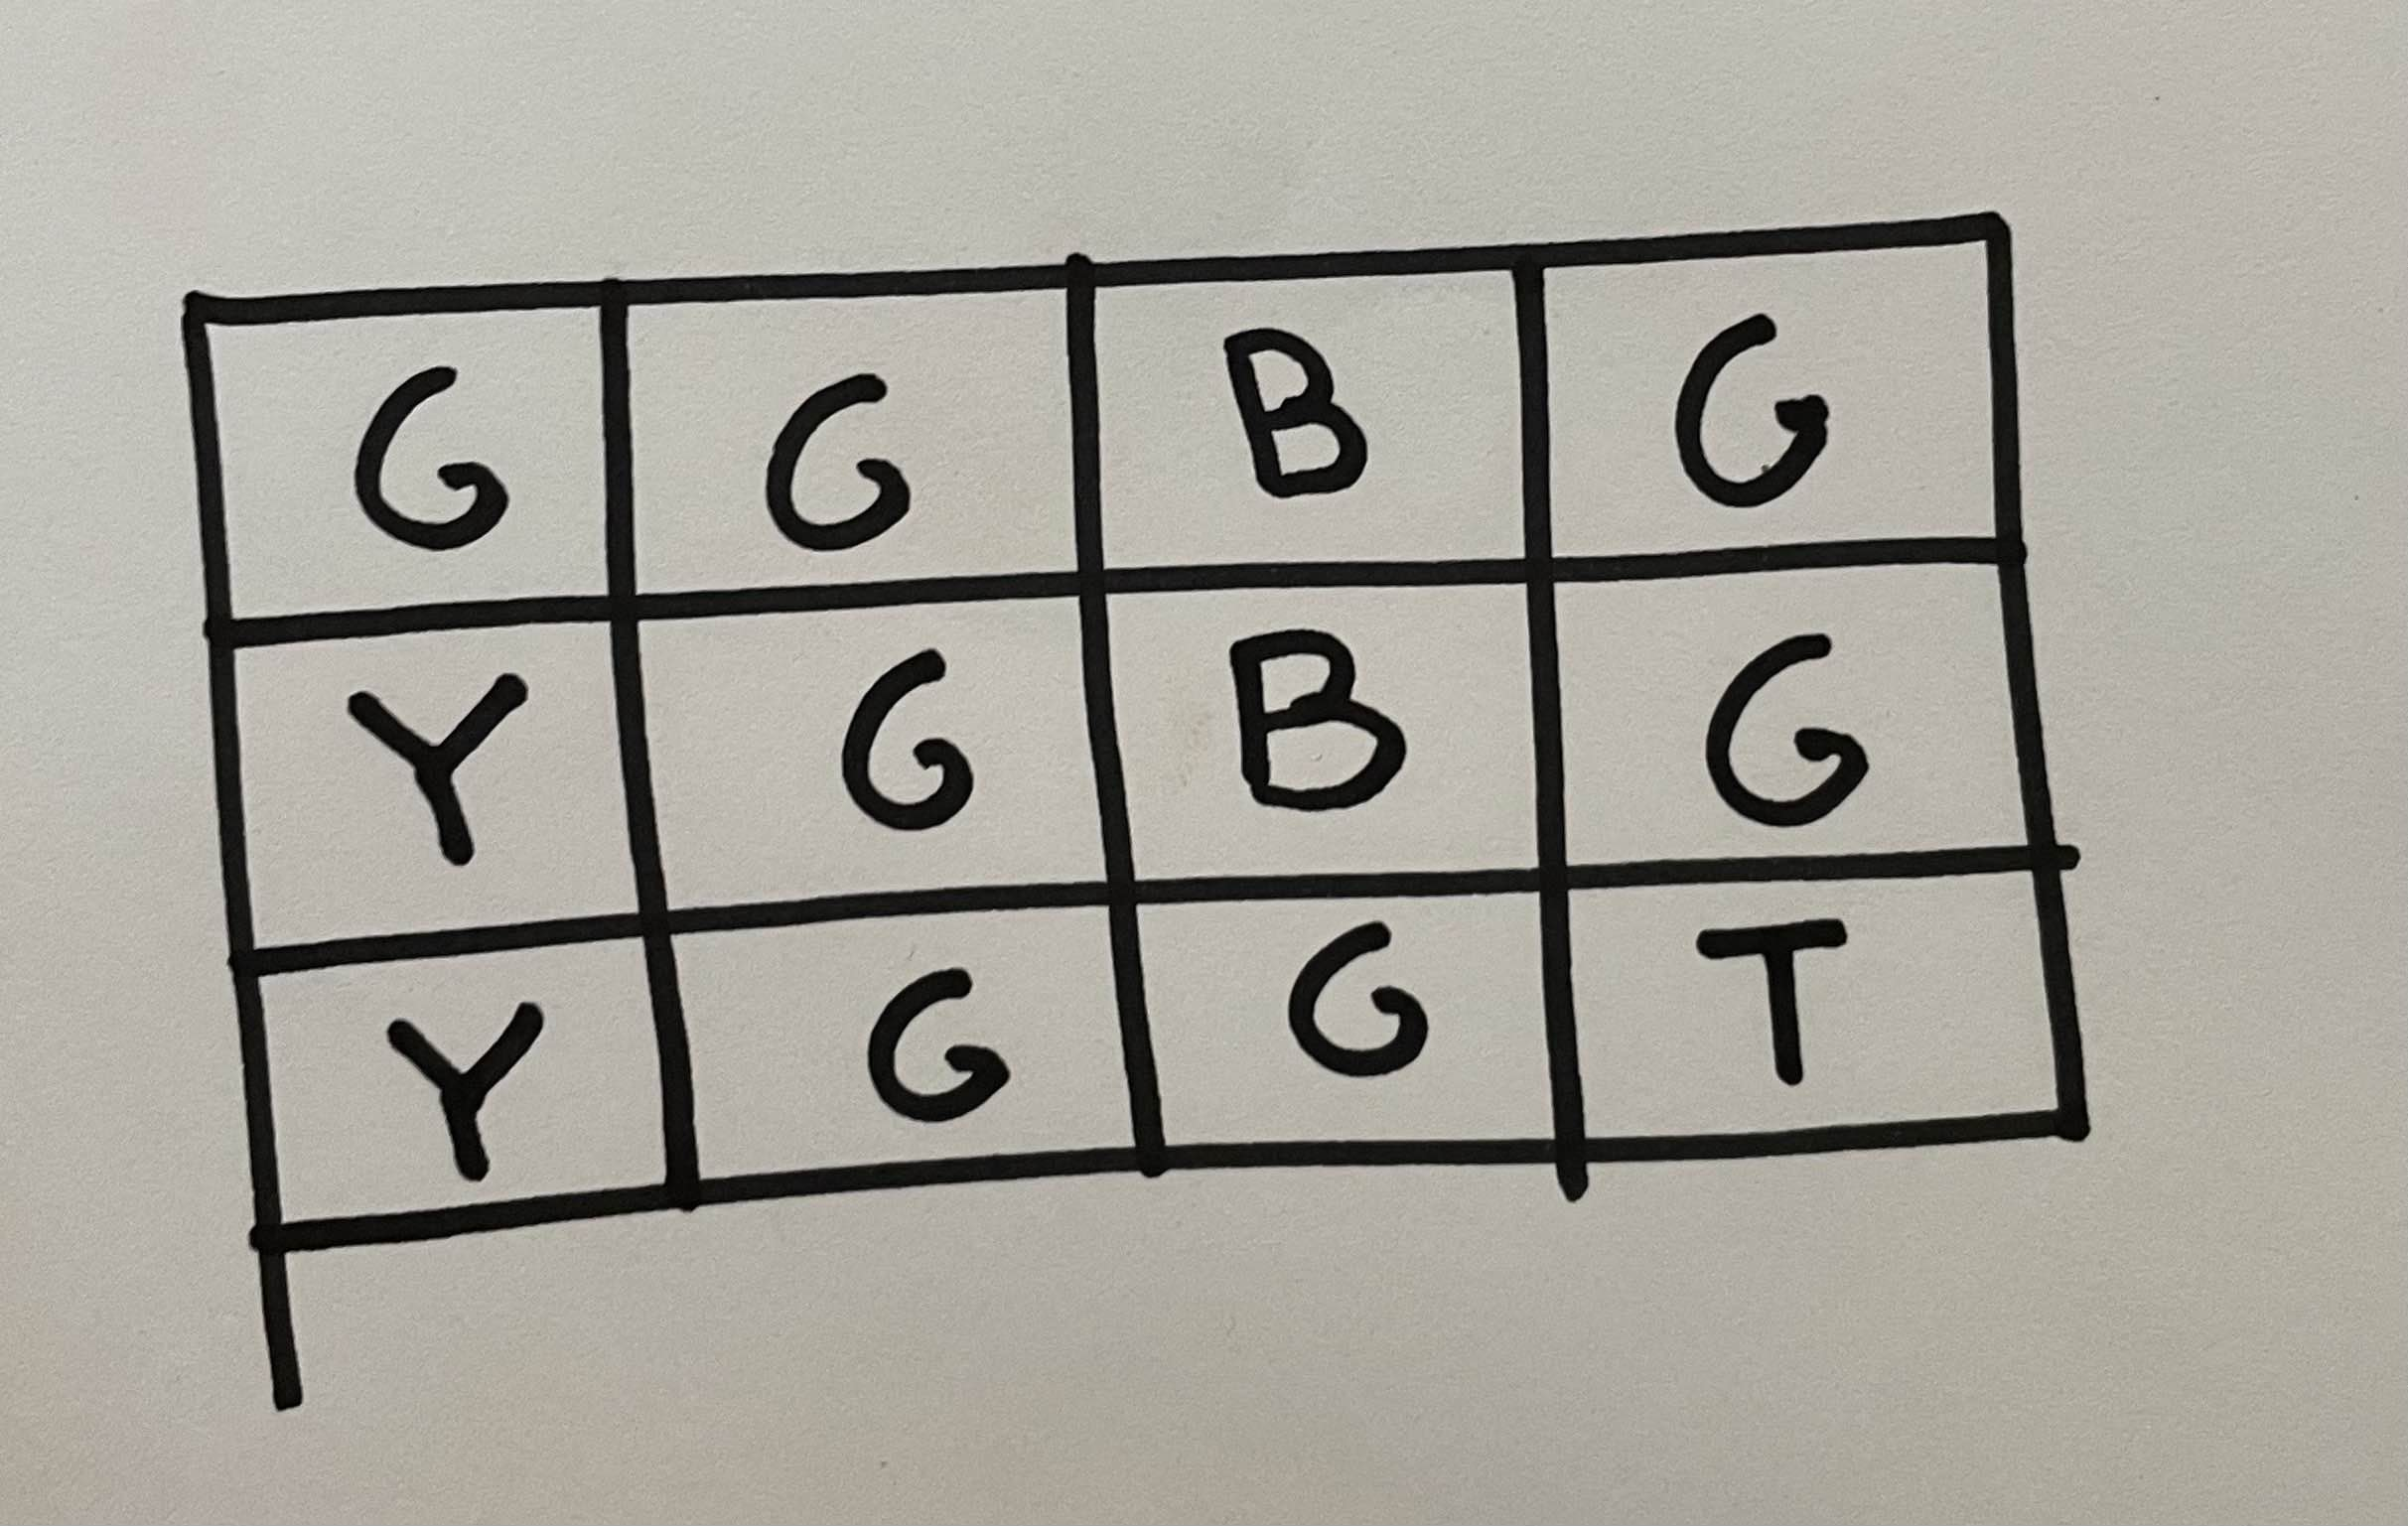 G G B G
Y G B G
Y G G T